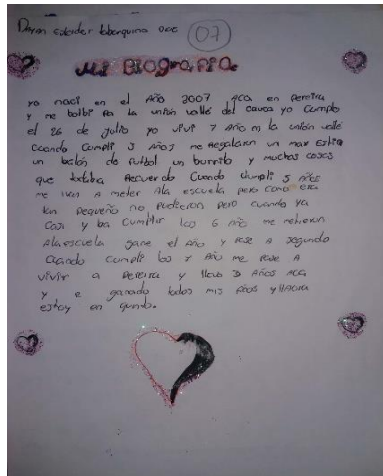 07
Mi Biografia
yo naci en el Año 2007 ACA en pereira
y me bolbi pa la unión valle del cauca yo cumplo
el 26 de julio yo vivi 7 Año en la unión valle
Cuando cumpli 3 años me Regalaron un max estia
un balón de futbol un burrito y muchas cosas
que todabia Recuerdo Cuando Cumpli 5 Años
me iban A meter Ala escuela pero como era
tan pequeño no pudieron pero cuando ya
casi y ba cumplir los 6 Año me metieron
Ala escuela gane el Año y pase A segundo
Cuando cumpli los 7 Año me pase A
vivir a pereira y llevo 3 Años ACA
y e ganado todos mis Años y Haora
estoy en quinto.